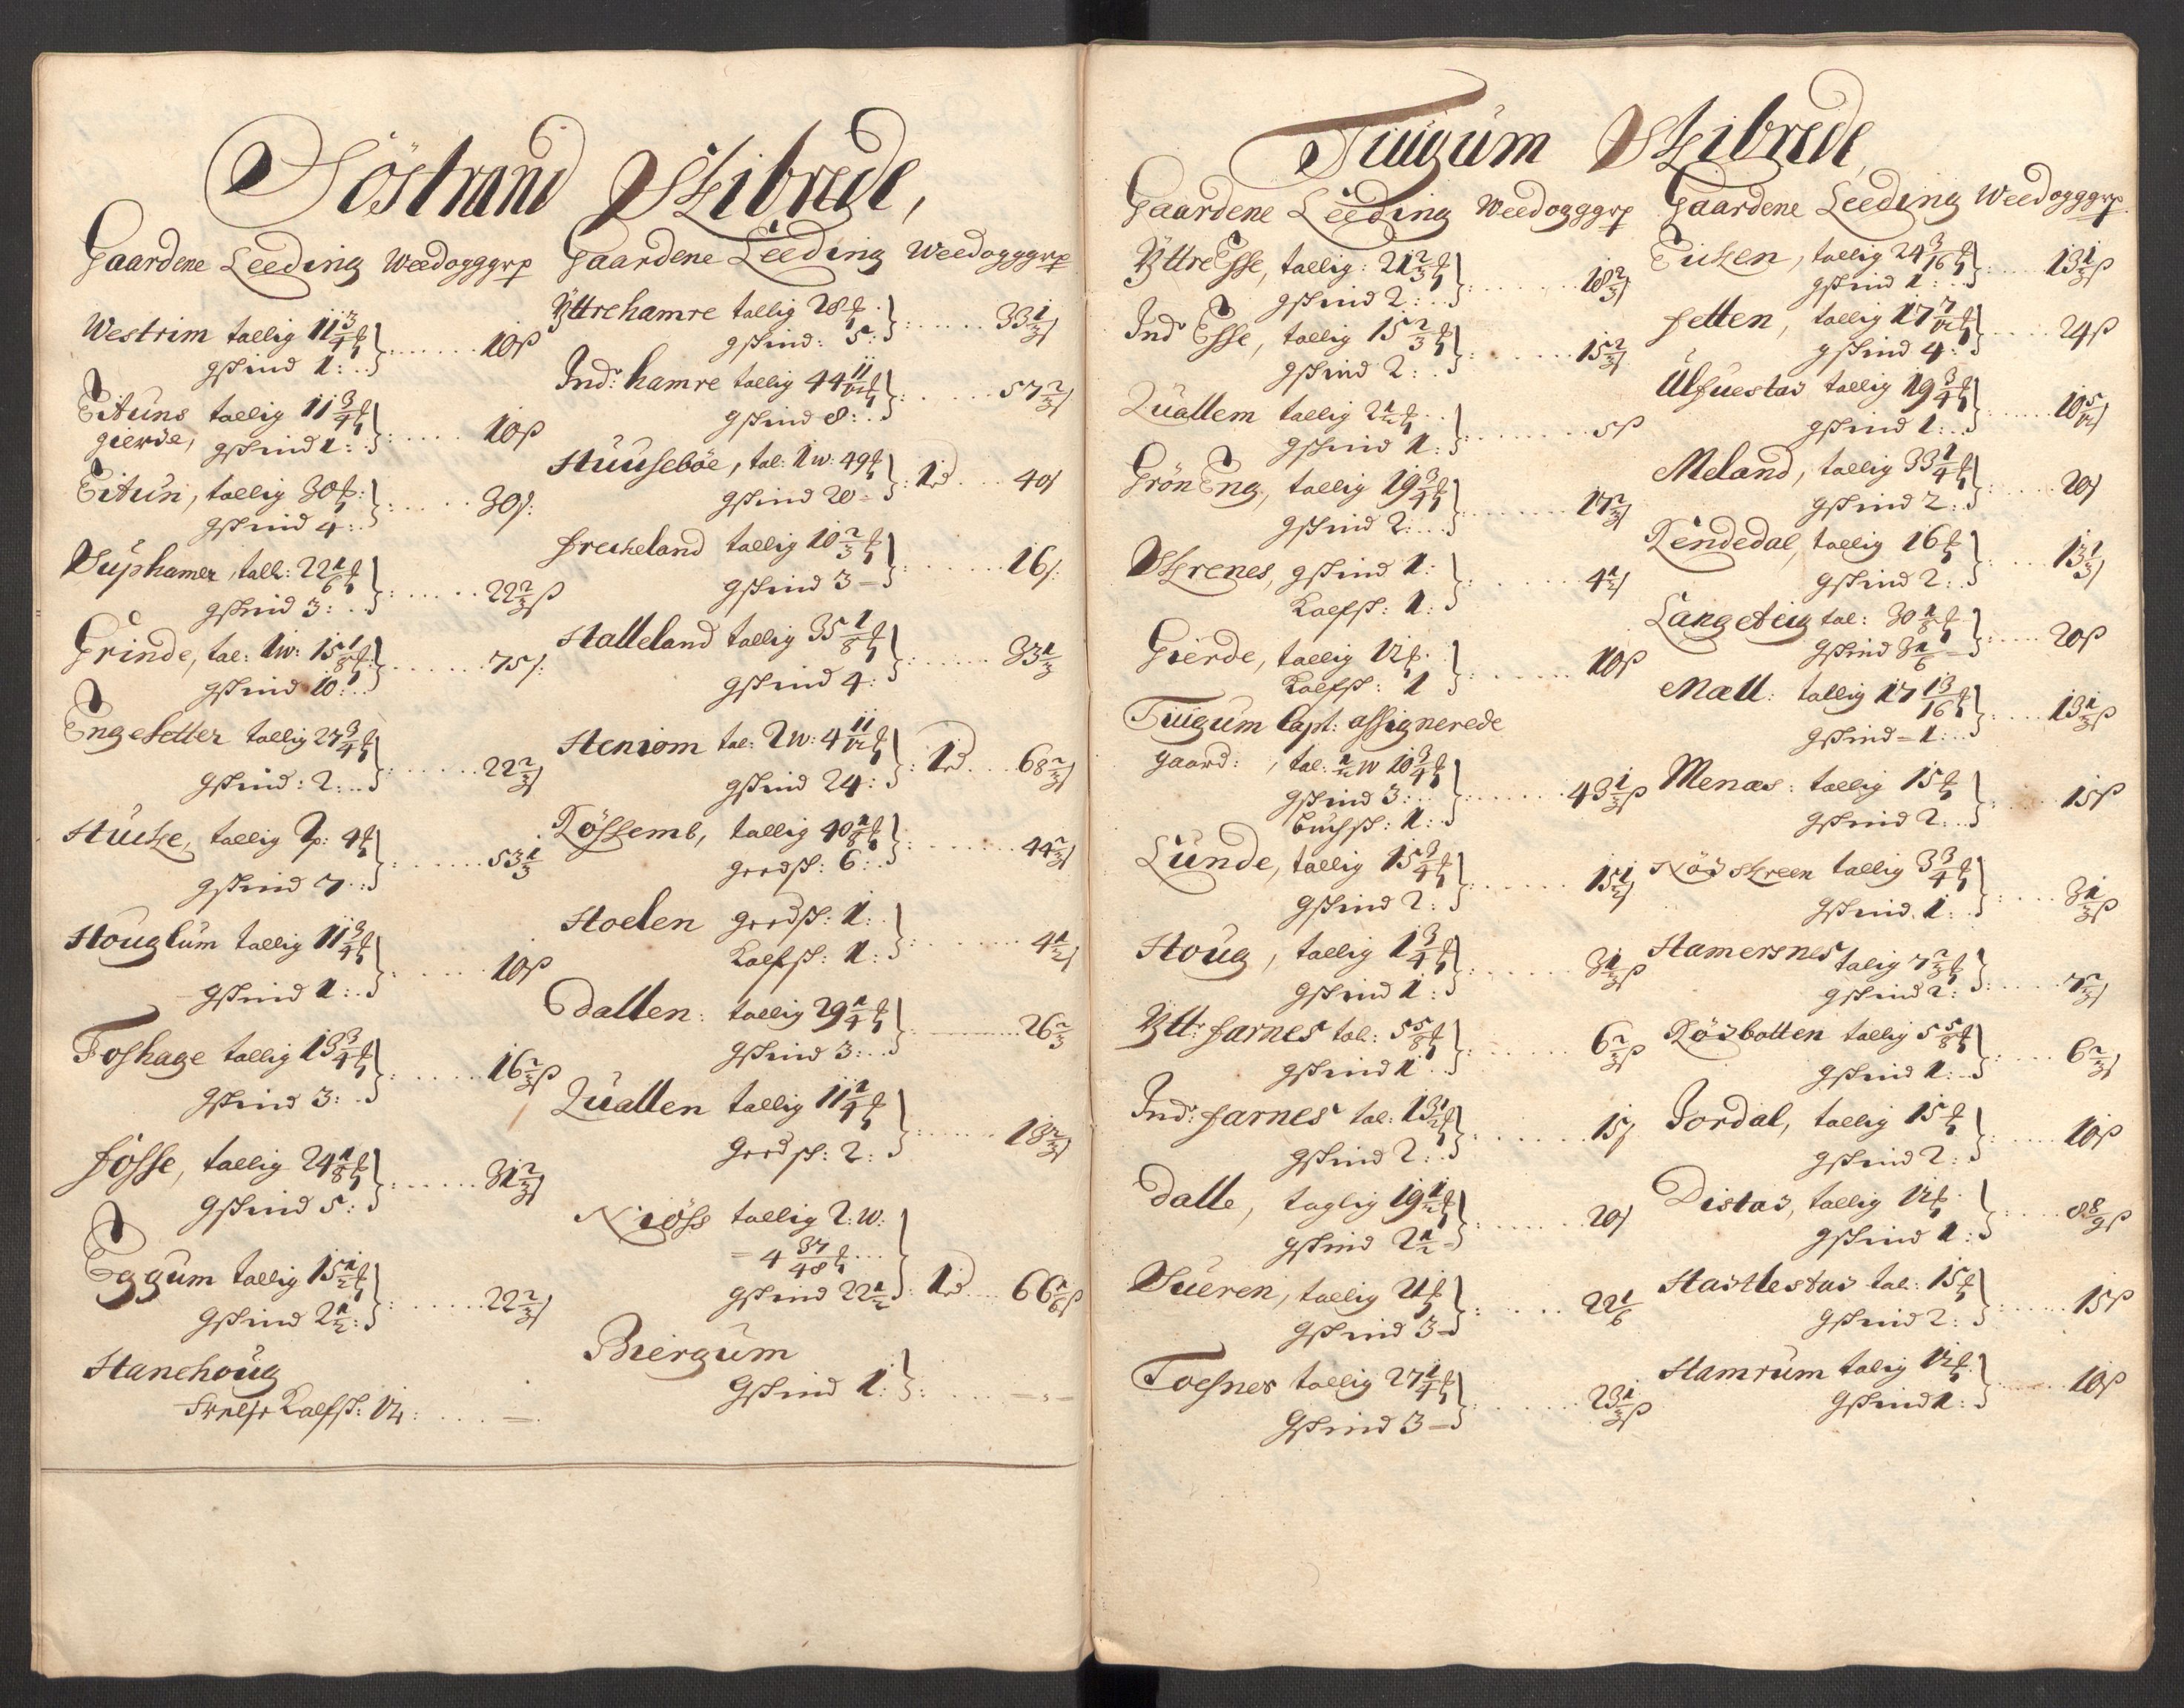 Söstrand Skibrede,
Gaardene Leeding Weedogggrp
Westrim tallig 11 3/4 ℔
gskind 1: 10 ß
Eituns tallig 11 3/4 ℔
gierde, gskind 1: 10 ß
Eitun, tallig 30 ℔:
gskind 4: 30 ß:
Suphamer, tall: 22 1/6 ℔
gskind 3: 22 2/3 ß
Grinde, tal: 1 w: 15 1/8 ℔
gskind 10: 75 ß:
Engesetter tallig 27 3/4 ℔
gskind: 2: 22 2/3 ß
Hucke, tallig 2 p: 4 ℔
gskind 7: 53 1/3
Houglum tallig 11 3/4 ℔
gskind 1: 10 ß
Foshage tallig 13 3/4 ℔
gskind 3: 16 2/3 ß
fosse, tallig 24 1/8 ℔
gskind 5: 31 2/3 ß
Eggum tallig 15 1/2 ℔
gskind 2 1/2: 22 2/3 ß
Hanehoug
Kalfsk: 12:
Gaardene Leeding Weedogggrp
Yttrehamre tallig 28 ℔
gskind: 5: 33 1/3 ß
Indr: hamre tallig 44 11/12 ℔
gskind 8: 57 2/3 ß
Huuseböe, tal: 1 w: 49 ℔
gskind 20 1 rd 40 ß
frecheland tallig 10 2/3 ℔
gskind 3 16 ß:
Halleland tallig 35 1/8 ℔
gskind 4: 33 1/3
Heniom tal: 2 w: 4 11/12 ℔
gskind 24: 1 rd 68 2/3 ß
Rössemb, tallig 40 1/8 ℔
geedsk: 6: 44 2/3 ß
Hoelen geedsk: 1:
Kalfsk: 1: 4 1/2 ß
dallen: tallig 29 1/4 ℔
gskind 3: 26 2/3
Quallen tallig 11 1/4 ℔
geedsk: 2: 13 2/3 ß
Niöss tallig 2: w:
= 4 37/48 ℔
gskind 22 1/2: 1 rd 66 1/6 ß
Biergum
gskind 1:
Tuugum Skibrede,
Gaardene Leeding Weedogggrp
YttreEsse, tallig: 21 2/3 ℔
gskind 2: 18 2/3 ß
Indr Esse, tallig 15 2/3 ℔
gskind 2: 15 2/3 ß
Quallem tallig 2 1/2 ℔
gskind 1: 5 ß
GrönEng, tallig 19 3/4 ℔
gskind 2: 17 2/3 ß
Skrenes, gskind 1:
Kalfsk: 1: 4 1/2 ß
Gierde, tallig 12 ℔
Kalfsk: 1 10 ß
Tuugum Capt: assignerede
gaard:, tal: 1/2 w 10 3/4 ℔
gskind 3:
buchsk: 1: 43 1/3 ß
Lunde, tallig 15 3/4 ℔
gskind 2: 15 1/2 ß
Houg, tallig 1 3/4 ℔
gskind 1: 3 1/3 ß
Ytt: farnes tal: 5 5/8 ℔
gskind 1 6 2/3 ß
Indr: farnes tal: 13 1/2 ℔
gskind 2: 15 ß
dalle, taglig 19 1/2 ℔
gskind 2 1/2 20 ß
Sueren, tallig 21 ℔
gskind 3 22 1/6
Toesnes tallig 27 1/4 ℔
gskind 3 23 1/3 ß
Gaardene Leeding Weedogggrp
Eicken, tallig 24 3/16 ℔
gskind 1: 13 1/3 ß
fetten, tallig 17 7/12 ℔
gskind 4: 24 ß
Ulfuestad tallig 19 3/4 ℔
gskind 1: 10 5/12 ß
Meland, tallig 33 1/4 ℔
gskind 2: 20 ß
Rendedal, tallig 16 ℔
gskind 2: 13 1/3 ß
Langeteig tal: 30 1/8 ℔
gskind 3 1/6 20 ß
Mæll: tallig 17 13/16 ℔
gskind = 1: 13 1/3 ß
Menæs: tallig 15 ℔
gskind 2: 15 ß
Nöd skreen tallig 3 3/4 ℔
gskind 1: 3 1/3 ß
Hamersnes talig 7 2/3 ℔
gskind 2: 7 2/3 ß
Rödbotten tallig 5 5/8 ℔
gskind 1: 6 2/3 ß
Jordal, tallig 15 ℔
gskind 2: 10 ß
Distad, tallig 12 ℔
gskind 1: 8 8/9 ß
Hastlestad tal: 15 ℔
gskind 2: 15 ß
Hamrum talig 12 ℔
gskind 1: 10 ß